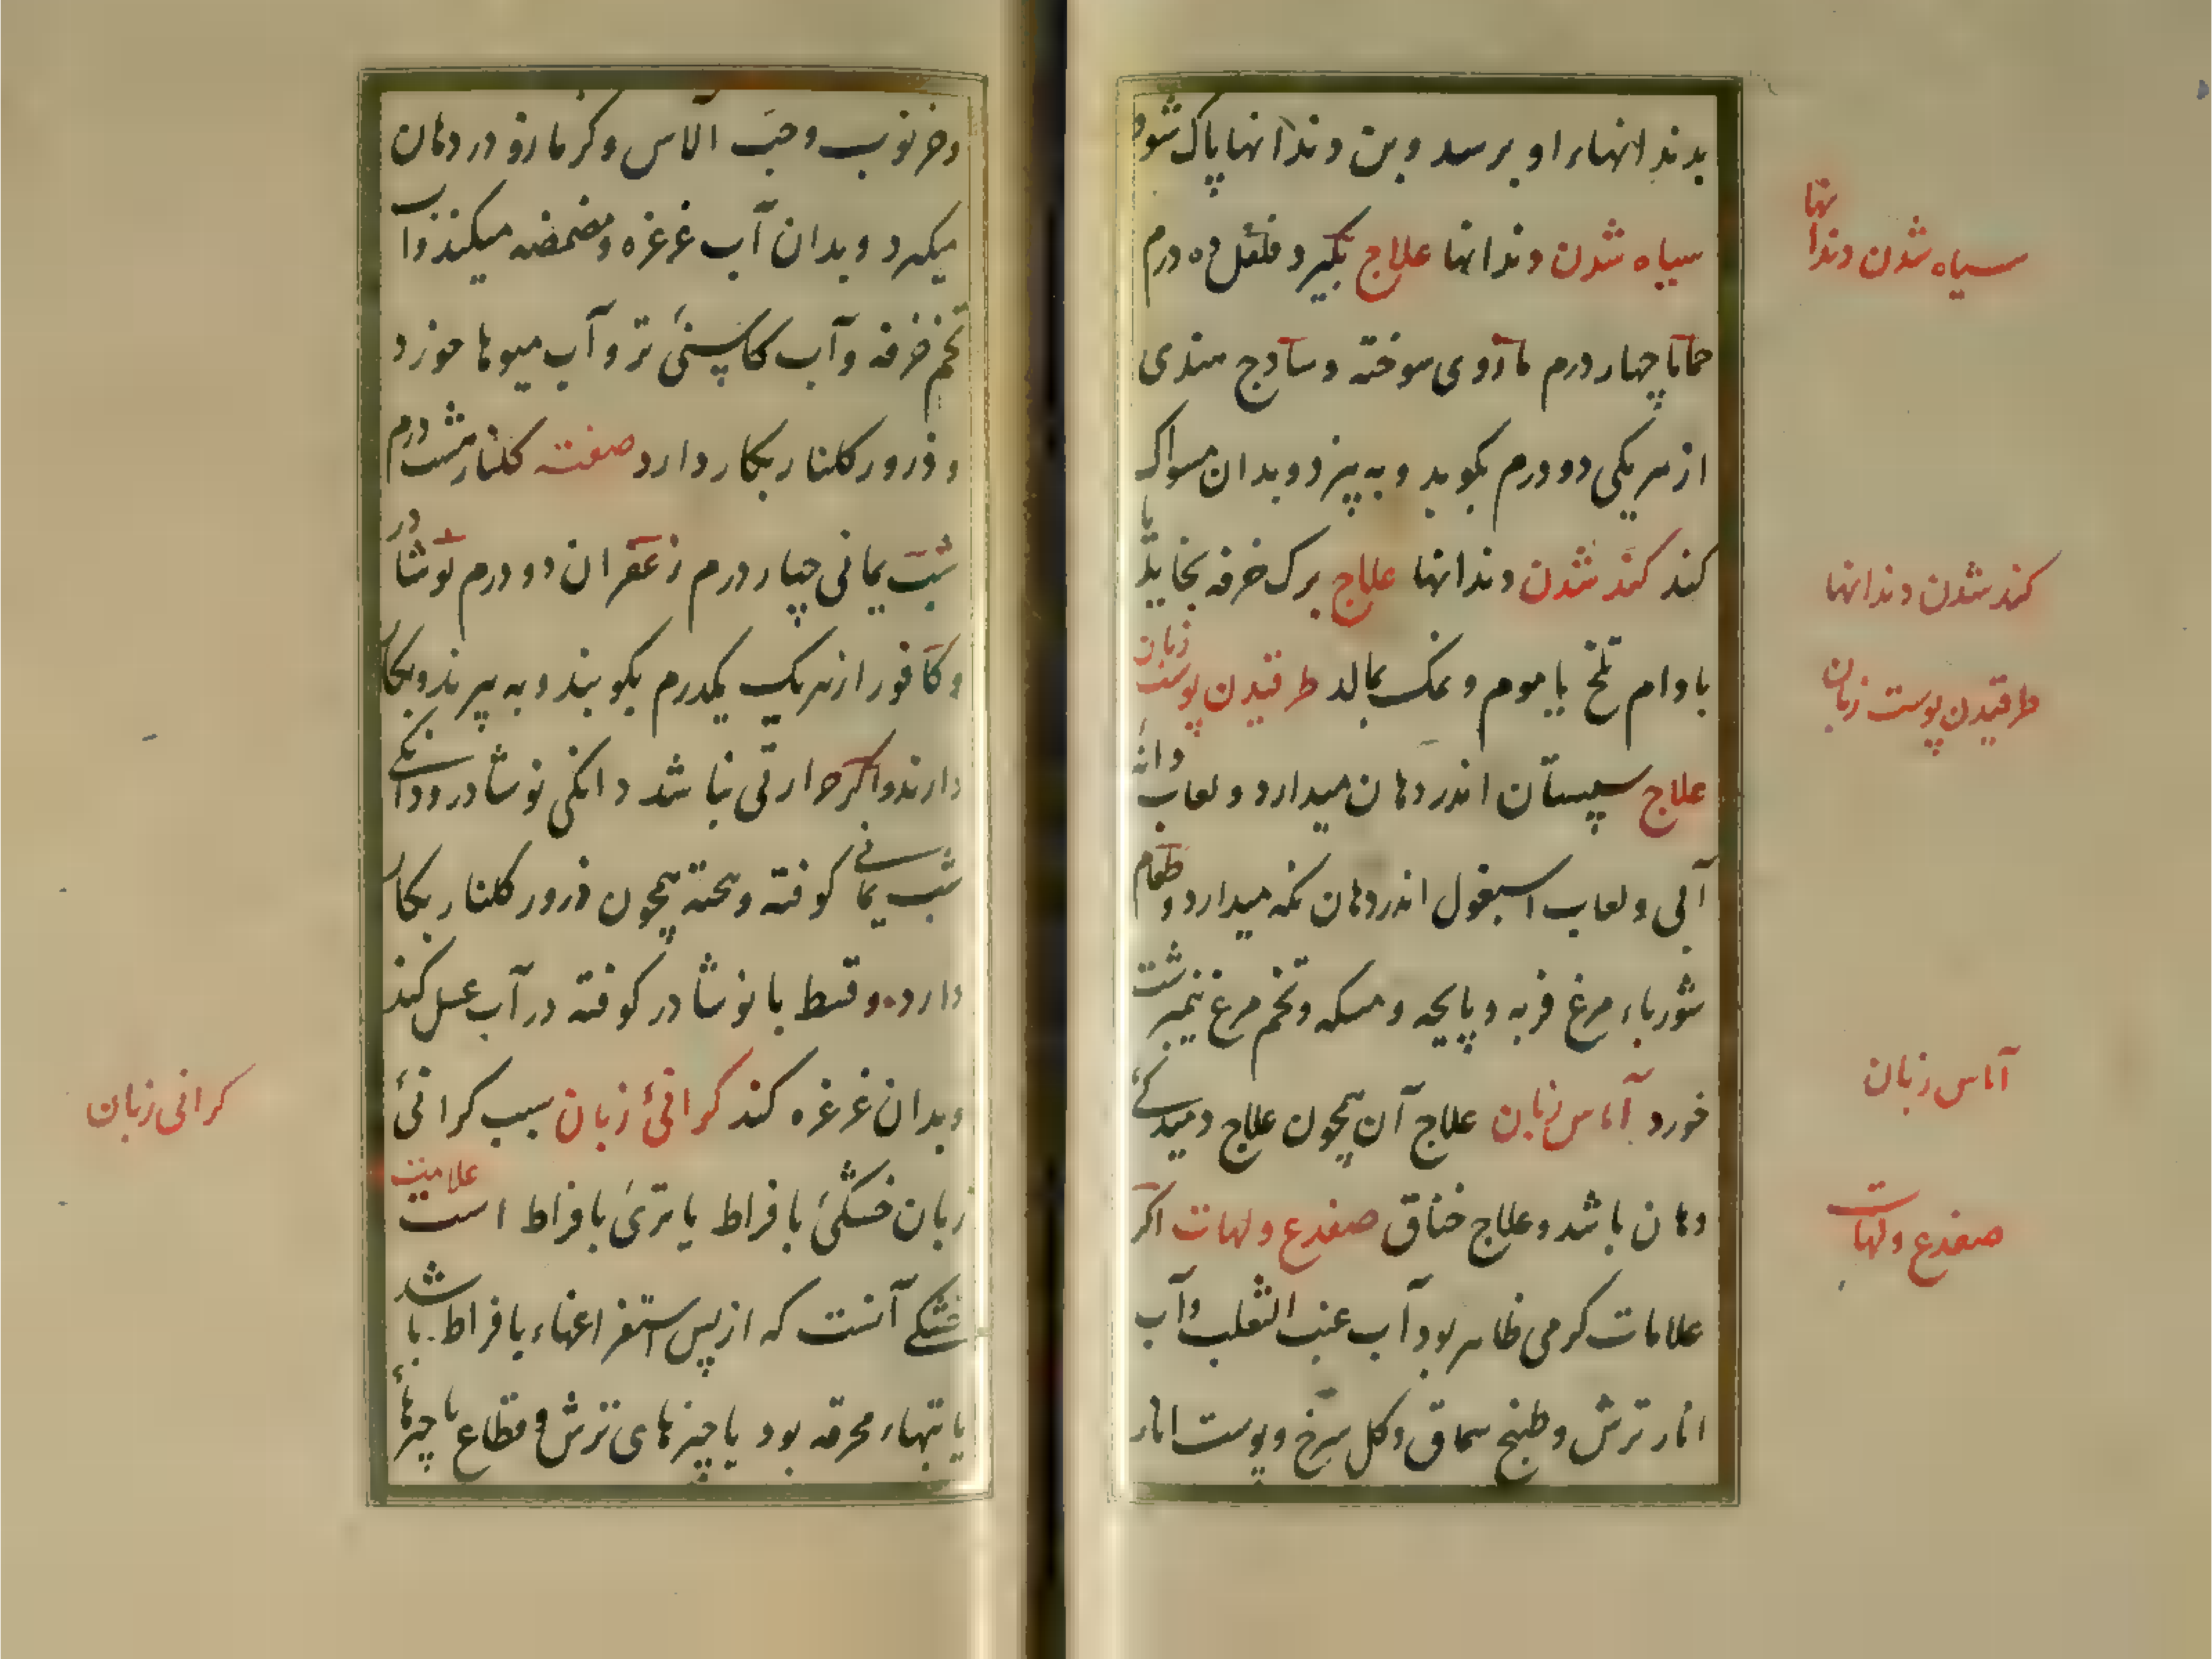 بدندانهاء او برسد و بن دندانها پاک شود
سیاه شدن دندانها علاج بگیرد فلفل ده درم
حماما چهار درم مازوی سوخته و ساذج هندی
از هر یکی دو درم بکوبد و به پیزد و بدان مسواک
کند کند شدن دندانها علاج برک خرفه بخاید یا
بادام تلخ یا موم و نمک بمالد طرقیدن پوست زبان
علاج سپستان اندر دهان میدارد و لعاب دانه
آبی و لعاب اسبغول اندر دهان نکه میدارد و طعام
شورباء مرغ فربه و پایچه و مسکه و تخم مرغ نیمبرشت
خورد آماس زبان علاج آن همچون علاج دمیدکی
دهان باشد و علاج خناق ضفدع و لهات اکر
علامات کرمی ظاهر بود آب عنب الثعلب و آب
انار ترش و طبیخ سماق و کل سرخ و پوست انار
سیاه شدن دندانها
کند شدن دندانها
طرقیدن پوست زبان
آماس زبان
ضفدع و لهات
و خرنوب و حب الاس و کزمازو در دهان
میکیرد و بدان آب غرغره و مضمضه میکند و آب
تخم خرفه و آب کاسنی تر و آب میوها خورد
و ذرور کلنار بکار دارد صفت کلنار هشت درم
شب یمانی چهار درم زعفران دو درم نوشادر
و کافور از هر یک یکدرم بکوبند و به پیزند و بکار
دارند و اکر حرارتی نباشد دانکی نوشادر و دانکی
شب یمانی کوفته و پخته همچون ذرور کلنار بکار
دارد و قسط با نوشادر کوفته در آب عسل کند
و بدان غرغره کند کرانی زبان سبب کرانی
زبان خشکی بافراط یا تری بافراط است علامت
خشکی آنست که از پس استفراغهاء بافراط باشد
یا تبهاء محرقه بود یا چیزهای ترش و مقطاع یا چیزهاء
کرانی زبان